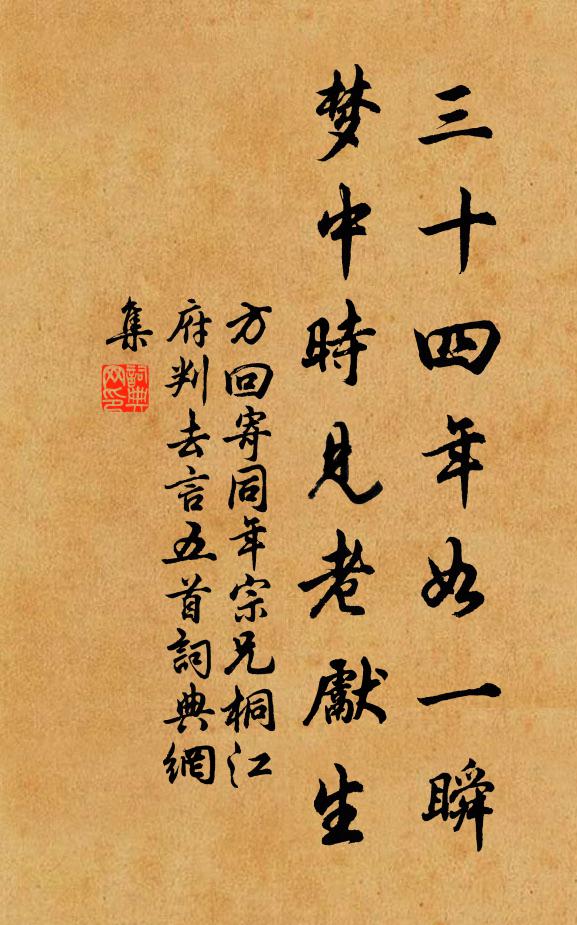 三十四年如一瞬
梦中時見老獻生
方回寄同年宗兄桐江
府判去言五首詞典網
集
詞典網印